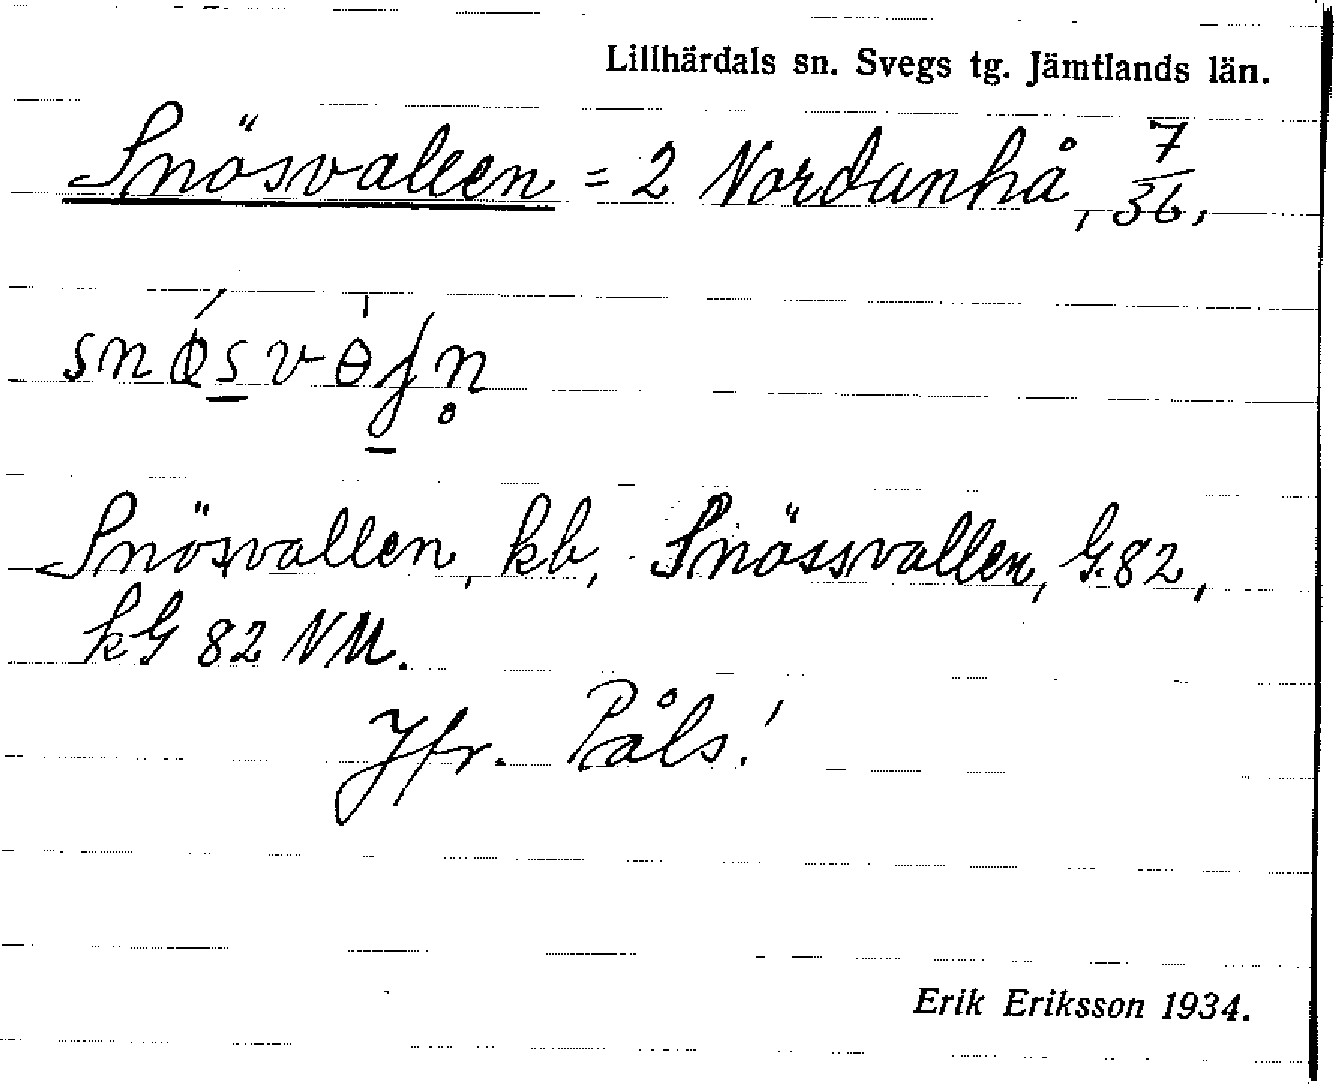 Lillhärdals sn. Svegs tg. Jämtlands län.
Snösvallen = 2 Nordanhå, 7/36,
Snösvallen, kb, Snössvallen, G.82,
kG 82 NM.
Jfr. Påls!
Erik Eriksson 1934.